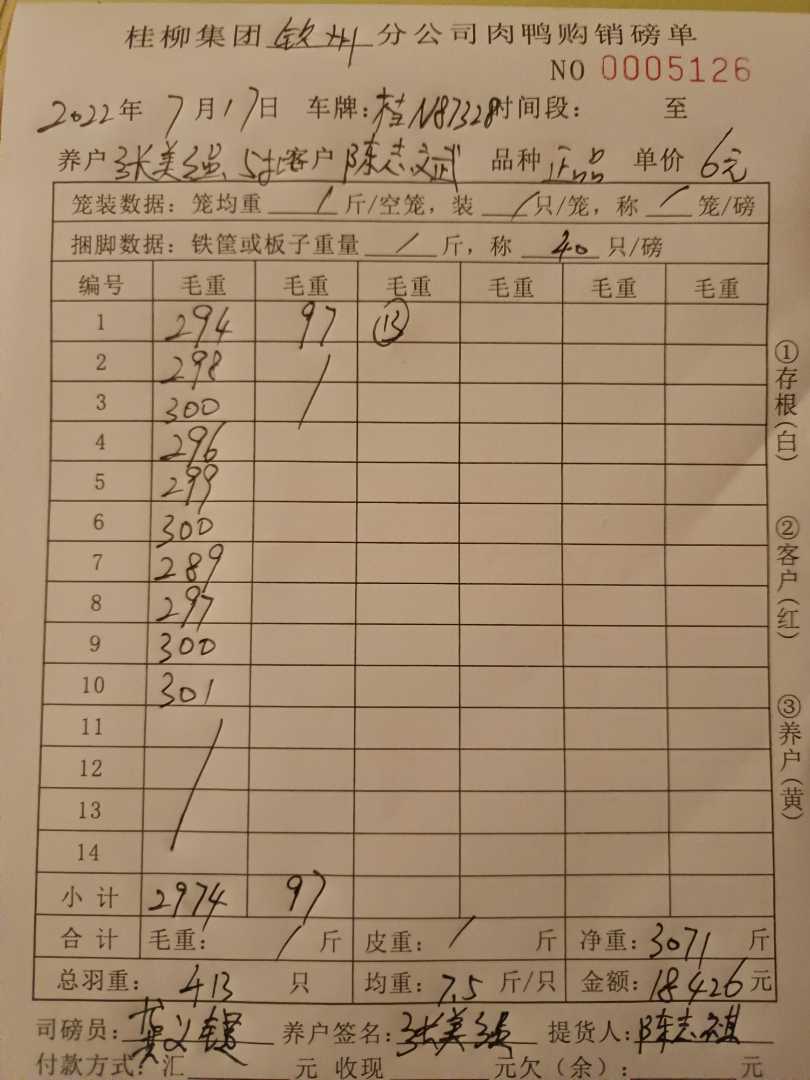 桂柳集团钦州分公司肉鸭购销磅单
NO 0005126
2022年 7月17日 车牌:桂N87328时间段: 至
养户张美强 5北客户陈志斌 品种正品 单价6元
笼装数据: 笼均重 / 斤/空笼, 装 / 只/笼, 称 / 笼/磅
捆脚数据: 铁筐或板子重量 / 斤, 称 40 只/磅
编号 毛重 毛重 毛重 毛重 毛重 毛重
1 294 97 ⑬
2 298 /
3 300
4 296
5 299
6 300
7 289
8 297
9 300
10 301
11 /
12
13
14
小计 2974 97
合计 毛重: / 斤 皮重: / 斤 净重:3071 斤
总羽重: 413 只 均重:7.5斤/只 金额:18426元
司磅员: 养户签名:张美强 提货人:陈志
付款方式: 汇 元 收现 元欠(余): 元
①存根(白)
②客户(红)
③养户(黄)